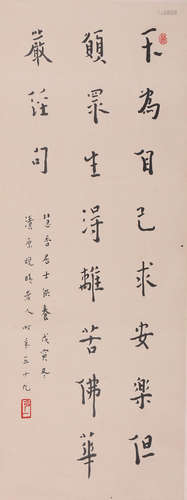 不為自己求安樂但
願眾生得離苦佛華
嚴經句
慧音居士供養戊寅冬
清原晚晴老人時年五十九